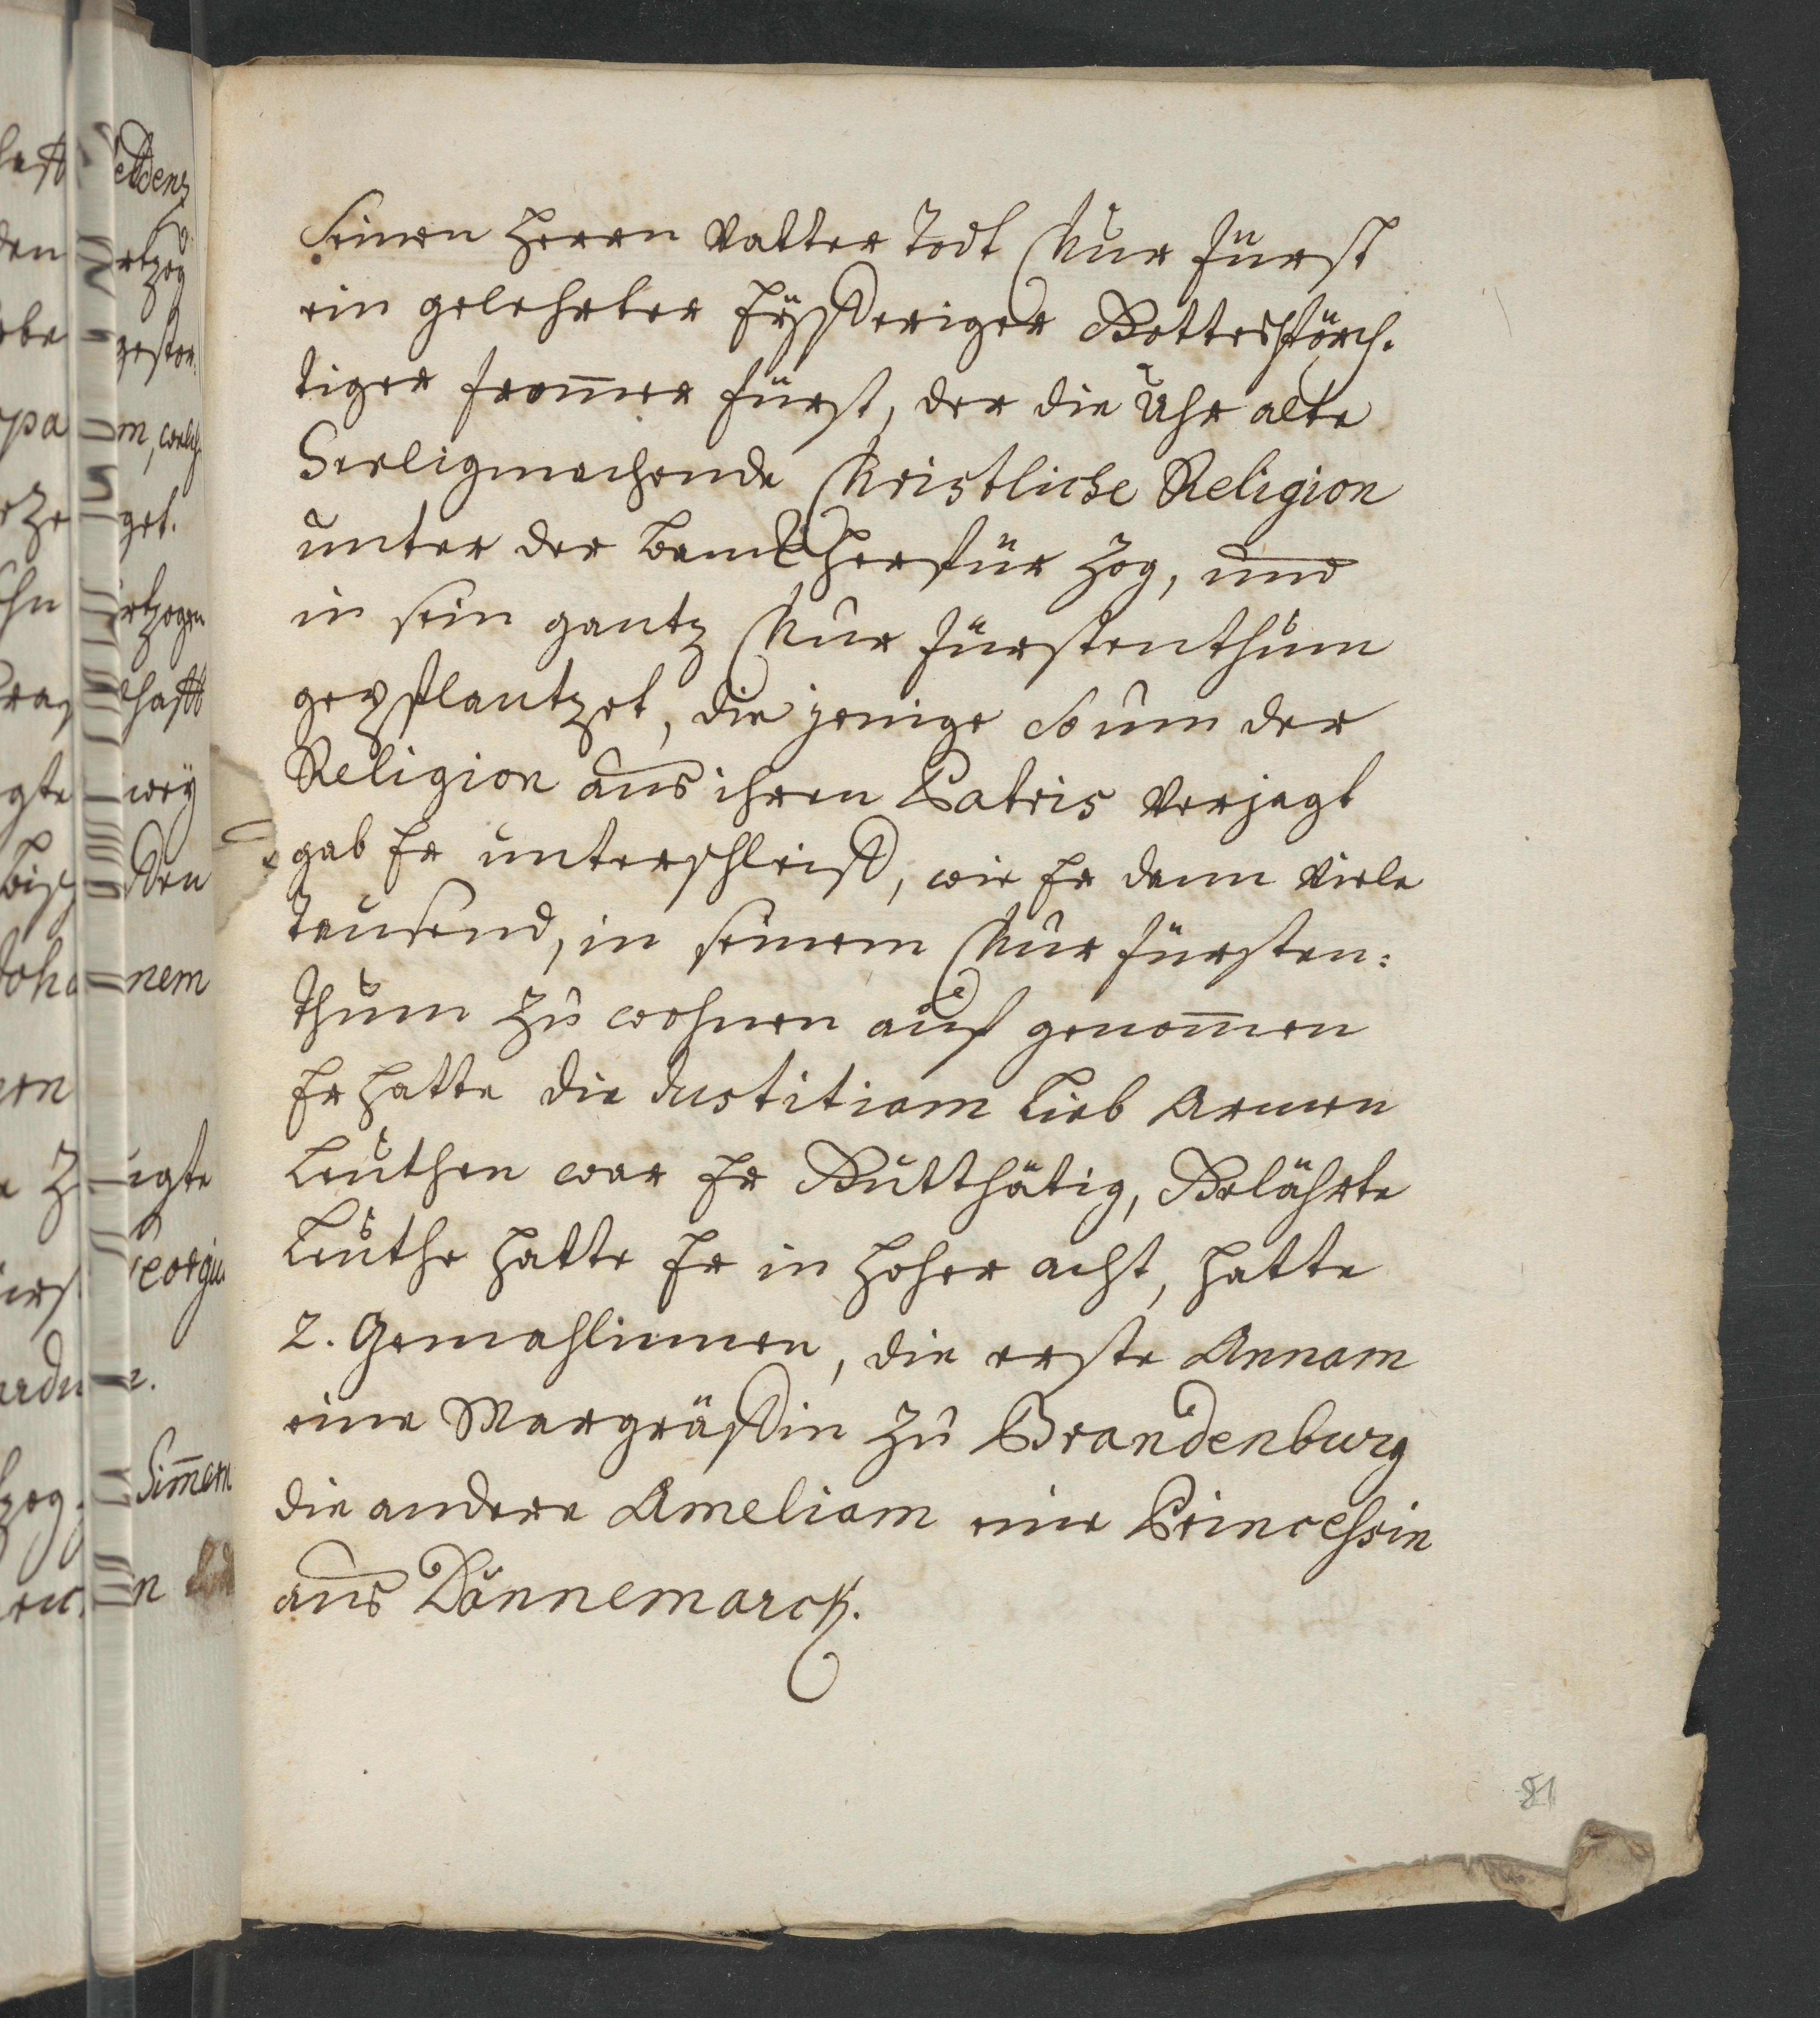 seinen Herrn Vatter Todt Chur Fürst
ein gelehrter Eyfferiger Gottesförch-
tiger from̄er Fürst, der die Uhr alte
Seeligmachende Christliche Religion
unter der banck herfür zog, und
in sein gantz Chur Fürstenthum
gepflantzet, die jenige so um der
Religion aus ihren Patris verjagt
gab Er unterschleiff, wie Er dann viele
Tausend, in seinem Chur Fürsten:
thum zu wohnen auf genom̄en
Er hatte die Justitiam lieb Armen
Leuthen war Er Gutthätig, Gelährte
Leuthe hatte Er in hoher acht, hatte
2. Gemahlinnen, die erste Annam
eine Margräffin zu Brandenburg
die andere Ameliam eine Princeßin
aus Dännemarck.
81